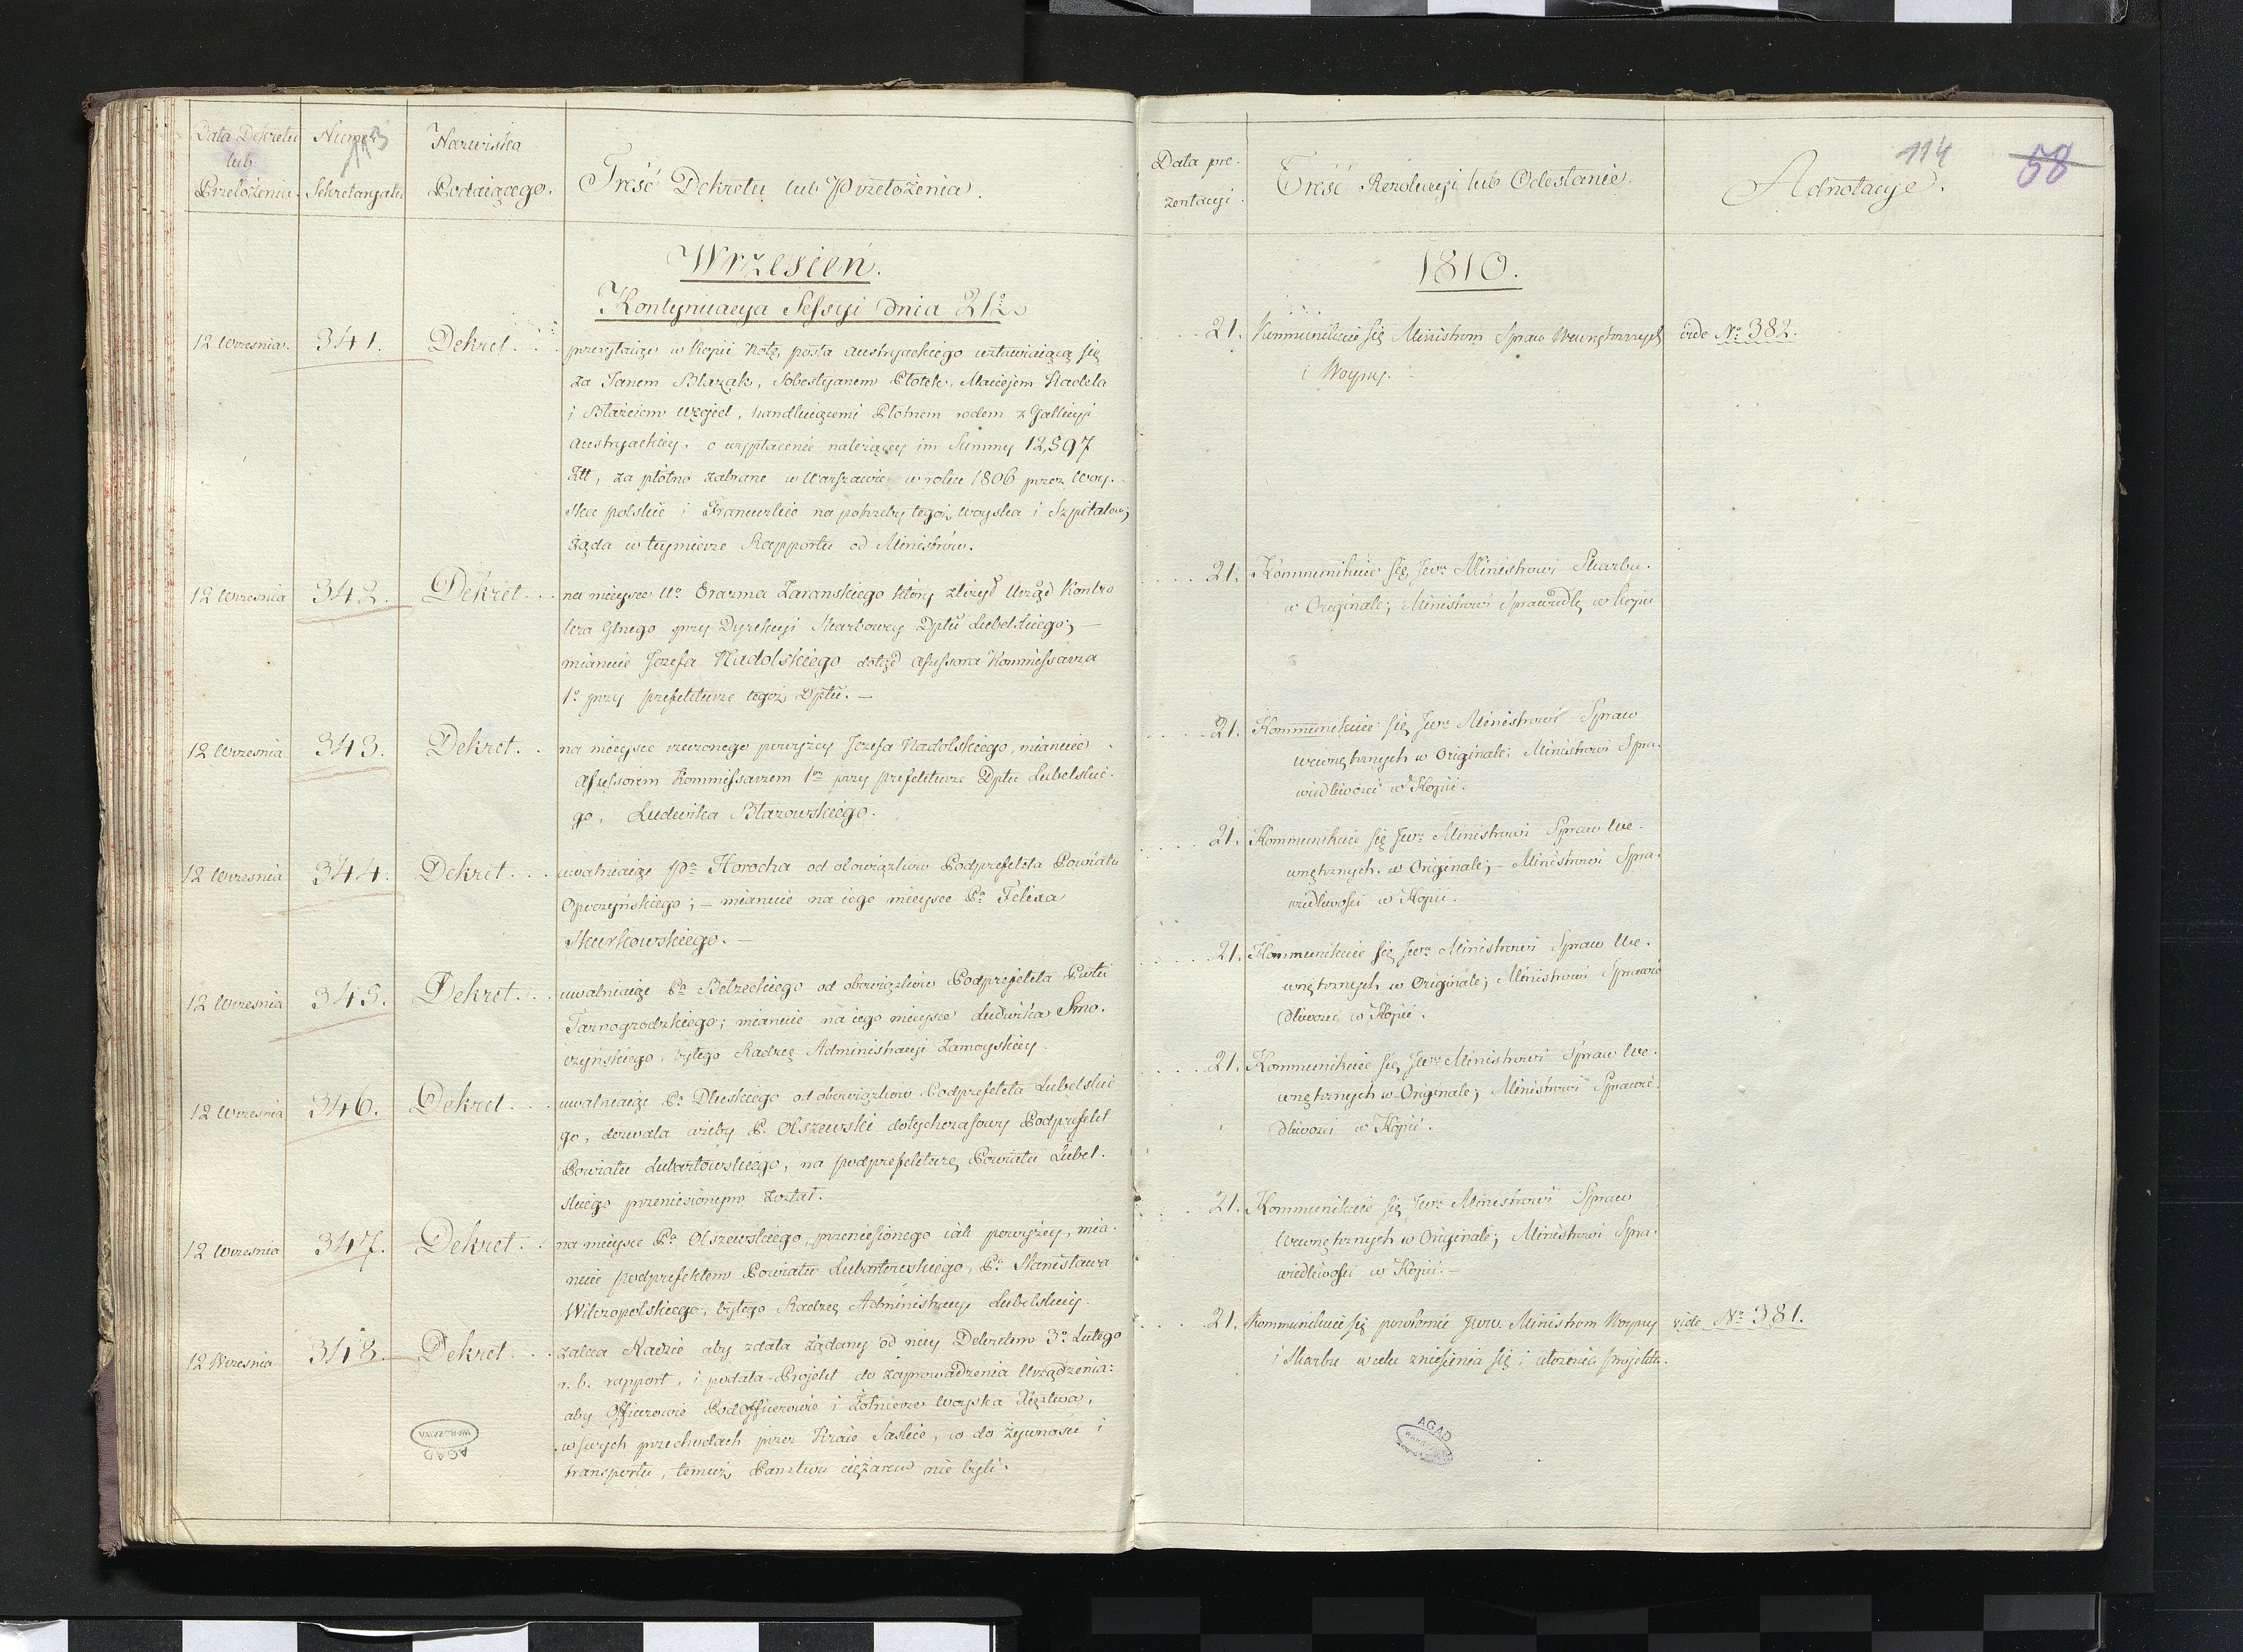 Data Dekretu
lub
Przełożenia.
Numer
113
Sekretaryatu
Nazwiska
Podaiącego.
Treść Dekretu lub Przełożenia.
Wrzesień.
Kontynuacya Sessyi dnia 21º
12 Wrzesnia. 341. Dekret.
przesyłaiąc w kopii Notę posła austryackiego wstawiaiącą się
za Janem Blazak, Sobestyanem Płotek, Maciejem Hadela
i Błażeiem Węgiel, handluiącemi Płotnem rodem z Gallicyi
Austryackiey, o wypłacenie należącey im Summy 12,597
Złł, za płótno zabrane w Warszawie w roku 1806 przez Woy-
sko polskie i Francuzkie na potrzeby tegoż woyska i Szpitalów;
żąda w teymierze Rapportu od Ministrów.
12 Wrzesnia 342. Dekret.
na mieysce Uº Erazma Zaranskiego który złożył Urząd Kontro
lera Glnego przy Dyrekcyi Skarbowey Dptu Lubelskiego; —
mianuie Jozefa Nadolskiego dotąd assessora Kommissarza
1º przy prefekturze tegoż Dptu. —
12 Wrzesnia 343. Dekret.
na mieysce rzeczonego powyżey Jozefa Nadolskiego, mianuie
Assessorem Kommissarzem 1m przy prefekturze Dptu Lubelskie-
go, Ludwika Błazowskiego.
12 Wrzesnia 344. Dekret.
uwalniaiąc Pa Horocha od obowiązków Podprefekta Powiatu
Opoczyńskiego; — mianuie na iego mieysce Pa Felixa
Skurkowskiego. —
12 Wrzesnia 345. Dekret.
uwalniaiąc Pa Belzeckiego od obowiązków Podprefekta Pwtu
Tarnogrodzkiego; mianuie na iego mieysce Ludwika Smo-
czyńskiego, byłego Radzcę Administracyi Zamoyskiey.
12 Wrzesnia 346. Dekret.
uwalniaiąc Pa Dłuskiego od obowiązków Podprefekta Lubelskie
go, dozwala ażeby P. Olszewski dotychczasowy Podprefekt
Powiatu Lubartowskiego, na podprefekturę Powiatu Lubel-
skiego przeniesionym został.
12 Wrzesnia 347. Dekret.
na mieysce Pa Olszewskiego, przeniesionego iak powyżey, mia-
nuie podprefektem Powiatu Lubartowskiego, Pa Stanisława
Wilczopolskiego, byłego Radzcę Administracyi Lubelskiey.
12 Wrzesnia 348. Dekret.
zaleca Radzie aby zdała żądany od niey Dekretem 3º Lutego
r. b. rapport, i podała Projekt do zaprowadzenia Urządzenia:
aby Officerowie PodOfficerowie i Żołnierze woyska Xięztwa,
w swych przechodach przez Kraie Saskie, co do żywności i
transportu, temuż Państwu ciężarem nie byli.
AGAD
WARSZAWA
Data pre-
zentacyi
Treść Rezolucyi lub Odesłanie.
Adnotacye.
114
58
1810.
21. Kommunikuie się Ministrom Spraw Wewnętrznych
i Woyny.
vide Nº 382.
21. Kommunikuie się Jwu Ministrowi Skarbu.
w Originale; Ministrowi Sprawiedlᵢ w kopii
21. Kommunikuie się Jwu Ministrowi Spraw
wewnętrznych w Originale; Ministrowi Spra-
wiedliwości w Kopii.
21. Kommunikuie się Jwu Ministrowi Spraw We-
wnętrznych. w Originale; — Ministrowi Spra-
wiedliwości w Kopii.
21. Kommunikuie się Jwu Ministrowi Spraw We-
wnętrznych w Originale; Ministrowi Sprawie
dliwości w Kopii.
21. Kommunikuie się Jwu Ministrowi Spraw We-
wnętrznych w Originale; Ministrowi Sprawie-
dliwości w Kopii.
21. Kommunikuie się Jwu Ministrowi Spraw
Wewnętrznych w Originale; Ministrowi Spra-
wiedliwości w Kopii. —
21. Kommunikuie się powtórnie Jww. Ministrom Woyny
i Skarbu w celu zniesienia się i ułożenia projektu.
vide Nº 381.
AGAD